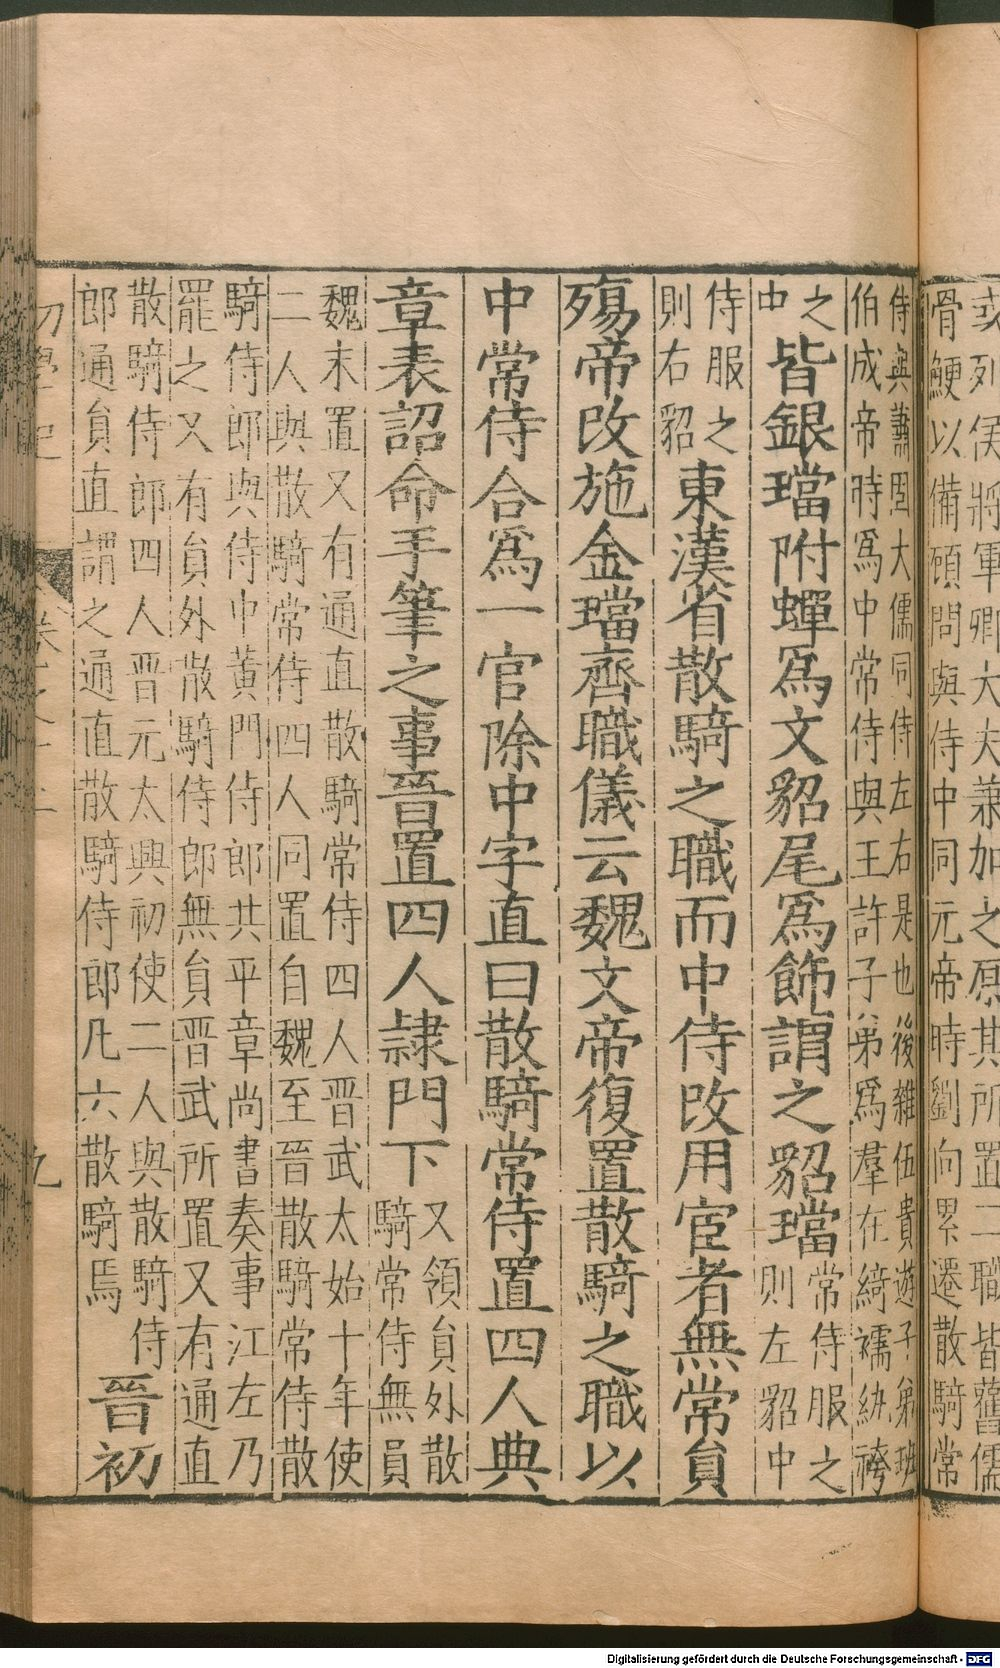 或列侯將軍卿大夫兼加之原其所置二職皆舊儒
骨鯁以備顧問與侍中同元帝時劉向累遷散騎常
侍與蕭固大儒同侍左右是也後雜伍貴遊子弟班
伯成帝時爲中常侍與王許子弟爲羣在綺襦紈袴
之
中
皆銀璫附蟬爲文貂尾爲飾謂之貂璫
常侍服之
則左貂中
侍服之
則右貂
東漢省散騎之職而中侍改用宦者無常員
殤帝改施金璫齊職儀云魏文帝復置散騎之職以
中常侍合爲一官除中字直曰散騎常侍置四人典
章表詔命手筆之事晉置四人隷門下
又領員外散
騎常侍無員
魏末置又有通直散騎常侍四人晉武太始十年使
二人與散騎常侍四人同置自魏至晉散騎常侍散
騎侍郎與侍中黃門侍郎共平章尚書奏事江左乃
罷之又有員外散騎侍郎無員晉武所置又有通直
散騎侍郎四人晉元太興初使二人與散騎侍
郎通員直謂之通直散騎侍郎凡六散騎焉
晉初
初學記
九
Digitalisierung gefördert durch die Deutsche Forschungsgemeinschaft - DFG